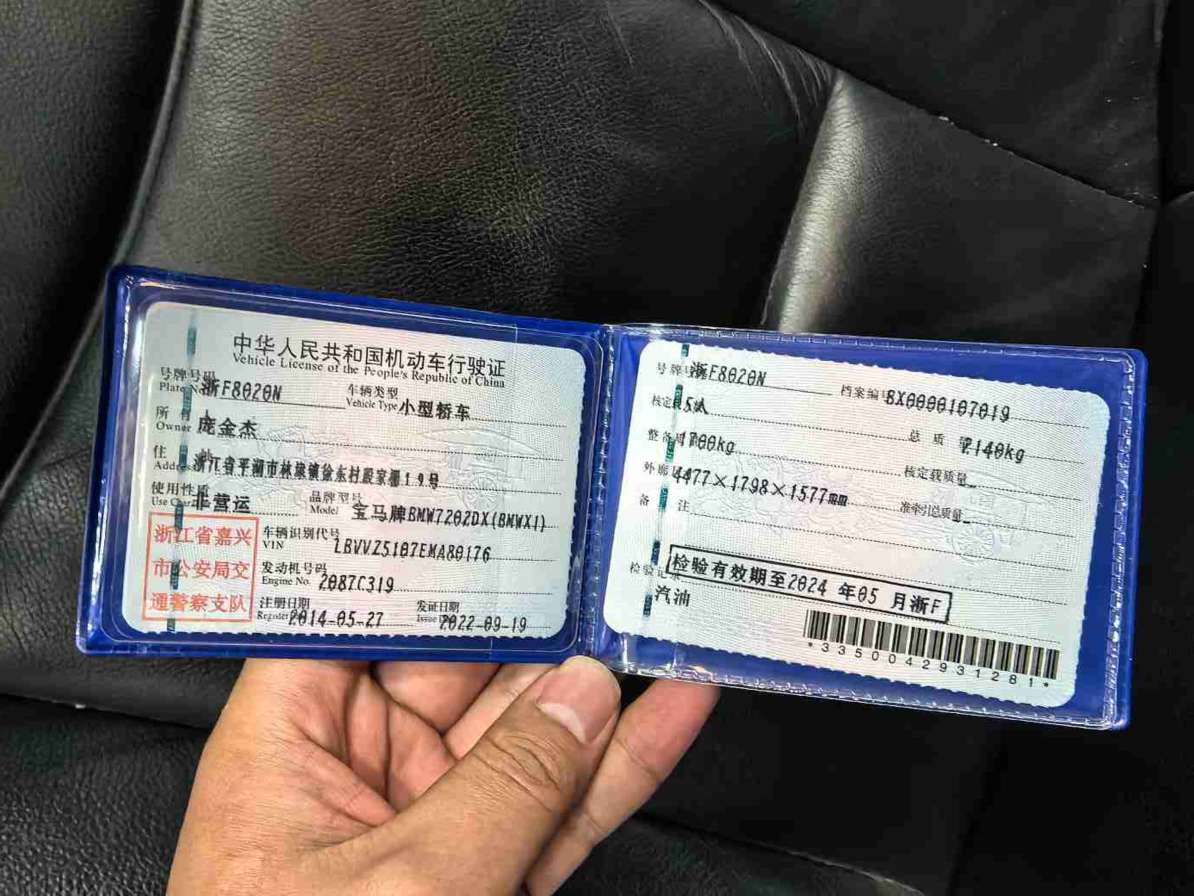 中华人民共和国机动车行驶证
Vehicle License of the People's Republic of China
号牌号码 浙F8020N 车辆类型 小型轿车
Plate No. Vehicle Type
所有 庞金杰
Owner
住 浙江省平湖市林埭镇徐东村殿家棚19号
Address
使用性质 非营运 品牌型号 宝马牌BMW7202DX(BMWX1)
Use Character Model
浙江省嘉兴
市公安局交
通警察支队
车辆识别代号 LBVVZ5107EMA80176
VIN
发动机号码 2087C319
Engine No.
注册日期 2014-05-27 发证日期 2022-09-19
Register Issue
号牌号码 浙F8020N 档案编号 BX0000107019
核定载 5人 总质量 2140kg
整备 1700kg 核定载质量 --
外廓 4477×1798×1577mm 准牵引总质量 --
备注
检验记录 检验有效期至2024年05月浙F
汽油
*3350042931281*